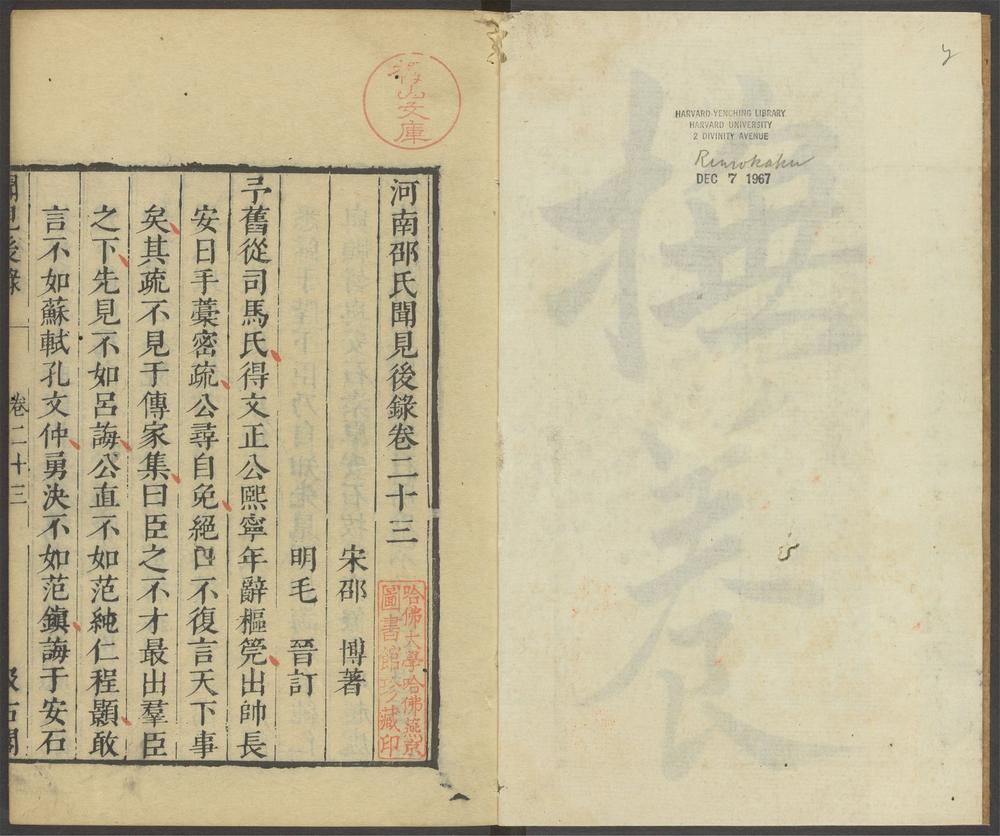 HARVARD-YENCHING LIBRARY
HARVARD UNIVERSITY
2 DIVINITY AVENUE
Rinrokaku
DEC 7 1967
河南邵氏聞見後錄卷二十三
宋邵　博著
明毛　晉訂
予舊從司馬氏得文正公熙寧年辭樞筦出帥長
安日手藁密疏公尋自免絕口不復言天下事
矣其疏不見于傳家集曰臣之不才最出羣臣
之下先見不如呂誨公直不如范純仁程顥敢
言不如蘇軾孔文仲勇決不如范鎮誨于安石
聞見後錄
卷二十三
汲古閣
哈佛大學哈佛燕京
圖書館珍藏印
山文庫